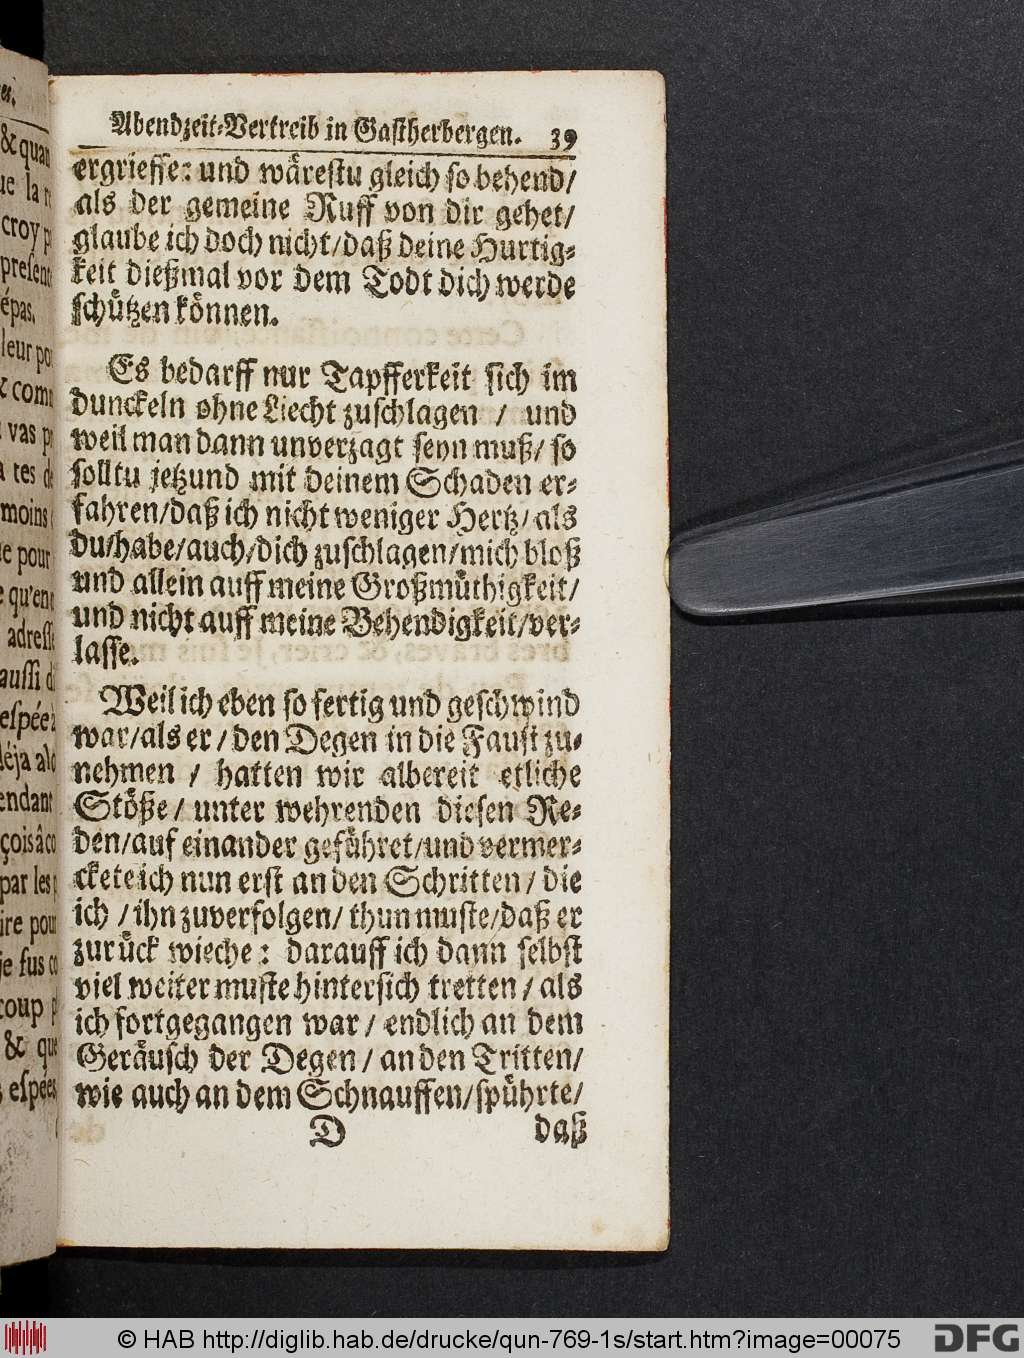 er.
& quan
ue la
croy
presen
épas.
leur po
& com
vas
a tes
moins
e pour
qu'en
adress
aussi d
espée
déja a
endant
çois à co
par les
ire pou
je fus co
coup
& que
espées
Abendzeit⸗Vertreib in Gastherbergen. 39
ergrieffe: und wärestu gleich so behend/
als der gemeine Ruff von dir gehet/
glaube ich doch nicht/daß deine Hurtig⸗
keit dießmal vor dem Todt dich werde
schützen können.
Es bedarff nur Tapfferkeit sich im
dunckeln ohne Liecht zuschlagen / und
weil man dann unverzagt seyn muß/ so
solltu jetzund mit deinem Schaden er⸗
fahren/daß ich nicht weniger Hertz/ als
du/habe/auch/dich zuschlagen/mich bloß
und allein auff meine Großmüthigkeit/
und nicht auff meine Behendigkeit/ver⸗
lasse.
Weil ich eben so fertig und geschwind
war/als er / den Degen in die Faust zu⸗
nehmen / hatten wir albereit etliche
Stöße/ unter wehrenden diesen Re⸗
den/auf einander geführet/und vermer⸗
ckete ich nun erst an den Schritten/ die
ich / ihn zuverfolgen/ thun muste/daß er
zurück wieche: darauff ich dann selbst
viel weiter muste hintersich tretten / als
ich fortgegangen war / endlich an dem
Geräusch der Degen / an den Tritten/
wie auch an dem Schnauffen/spührte/
D daß
© HAB http://diglib.hab.de/drucke/qun-769-1s/start.htm?image=00075 DFG